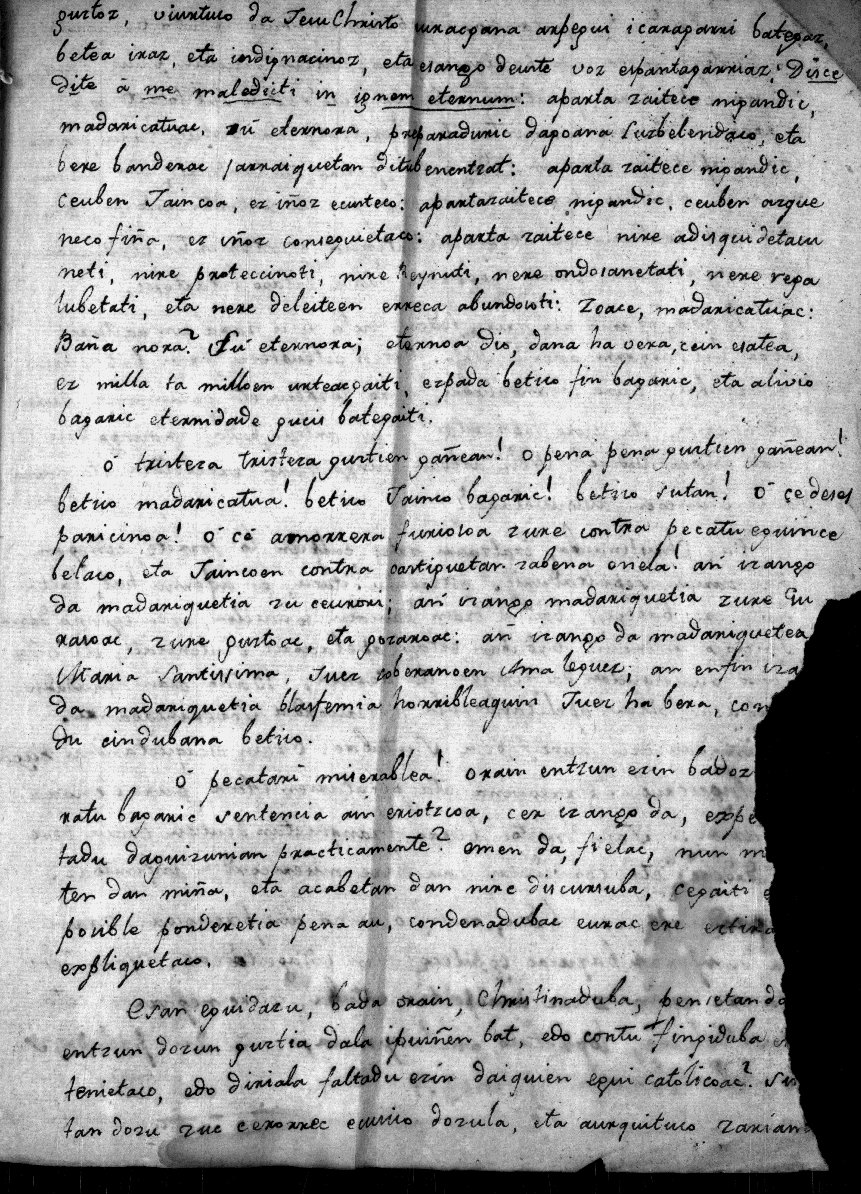 gustoz, viurtuco da Jesu Christo uracgana arpegui icaragarri bategaz,
betea iraz, eta indignacinoz, eta esango deuste voz espantagarriaz: Disce
dite á me maledicti in ignem eternum: aparta zaitece nigandic,
madaricatuac, sú eternora, preparaduric dagoana Luzbelendaco, eta
bere banderac jarraiquetan ditubenentzat: aparta zaitece nigandic,
ceuben Jaincoa, ez iñoz ecusteco: apartazaitece nigandic, ceuben azque
neco fiña, ez iñoz conseguietaco: aparta zaitece nire adisquidetasu
neti, nire proteccinoti, nire Reynuti, nere ondosanetati, nere rega
lubetati, eta nere deleiteen erreca abundosoti: Zoace, madaricatuac:
Baña nora? Sú eternora; eternoa dio, dana ha vera, cein esatea,
ez milla ta milloen urteacgaiti, ezpada betico fin bagaric, eta alivio
bagaric eternidade gucis bategaiti.
Ó tristeza tristeza gustien gañean! O pena pena gustien gañean!
betico madaricatua! betico Jainco bagaric! betico sutan! Ó çe deses
paricinoa! Ó cé amorrera furiosoa zure contra pecatu eguince
belaco, eta Jaincoen contra castiguetan zabena onela! an izango
da madariquetia zu ceurori; an izango madariquetia zure Gu
rasoac, zure gustoac, eta gozaroac: an izango da madariquetea
Maria Santissima, Juez soberanoen Ama leguez; an enfin iza
da madariquetia blasfemia horribleaquin Juez ha bera, con
du cindubana betico.
Ó pecatari miserablea! orain entzun ezin badoz
ratu bagaric sentencia ain eriotzcoa, cer izango da, expe
tadu daguizunian practicamente? emen da, fielac, nun m
ten dan miña, eta acabetan dan nire discursuba, cegaiti
posible ponderetia pena au, condenadubac eurac ere ez
expliquetaco.
Esan eguidazu, bada orain, Christinaduba, pensetan do
entzun dozun gustia dala ipuiñen bat, edo contu fingiduba
tenietaco, edo diriala faltadu ezin daiquien egui catolicoac?
tan dozu zuc cerorrec ecusico dozula, eta aurquituco zarian